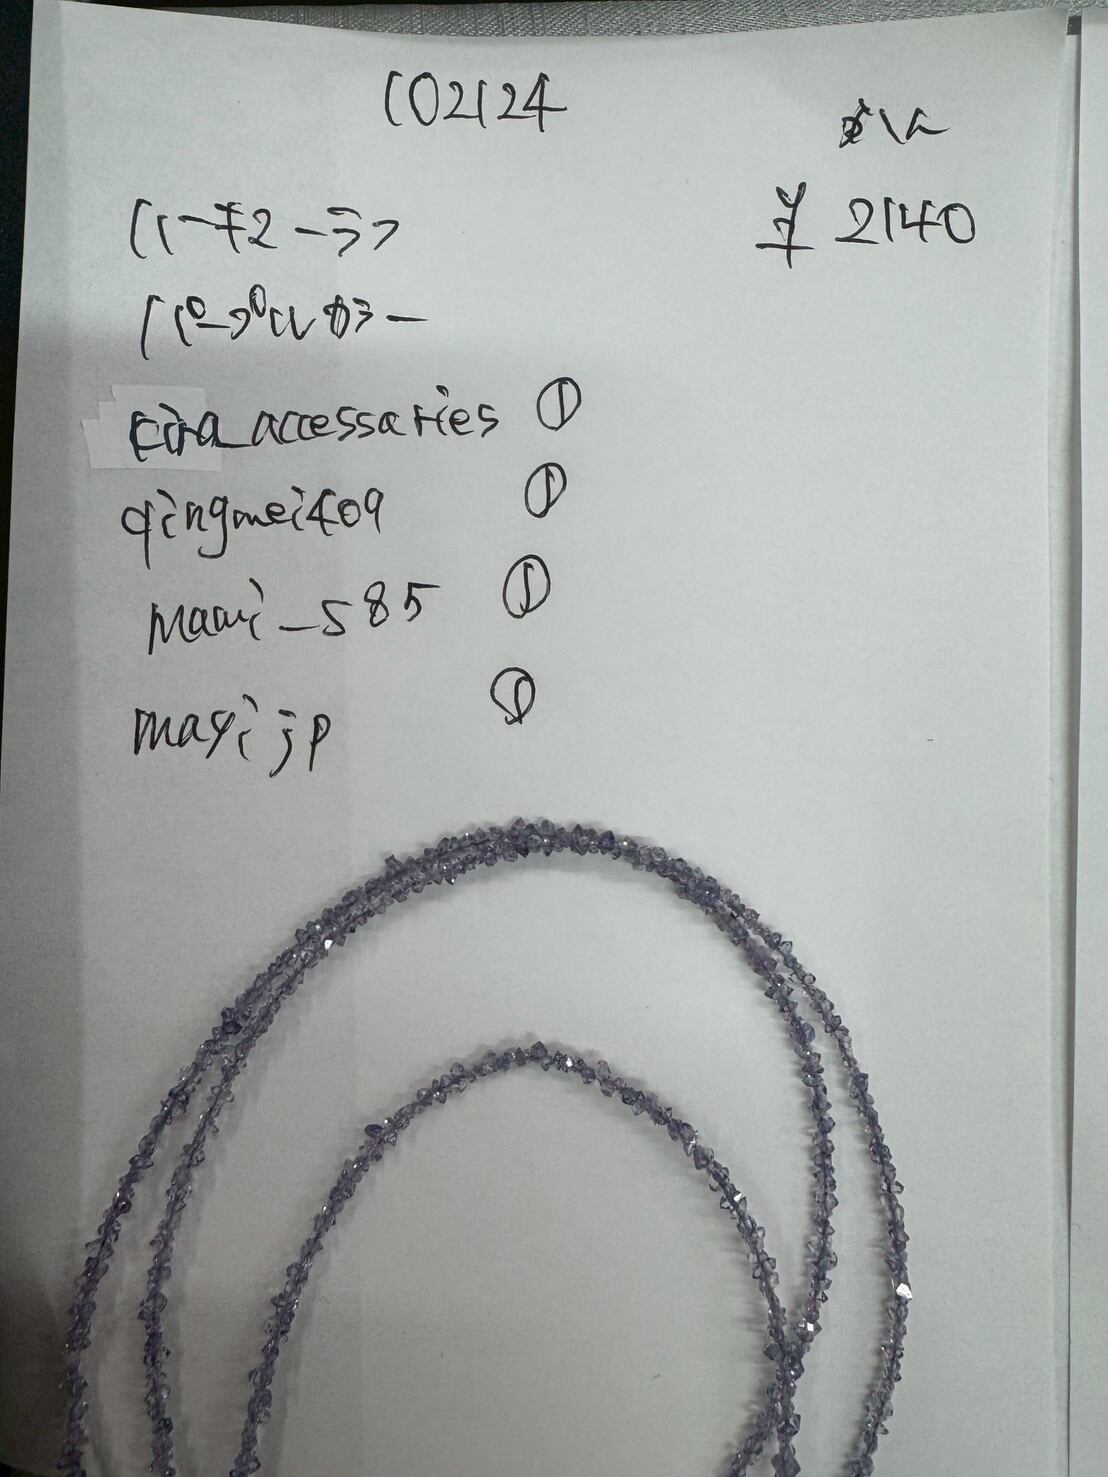 102124
¥ 2140
ハーキマーラブ
パープルカラー
kira_accessaries ①
qingmei409 ①
mami_s85 ①
mayijp ①